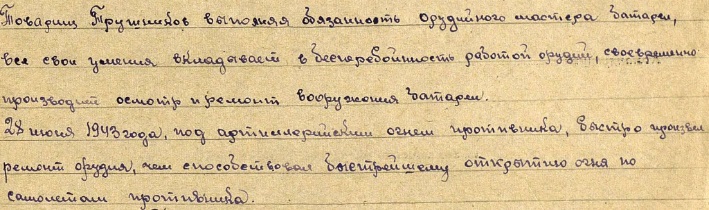 Товарищ Трушников выполняя обязанность орудийного мастера батареи,
все свои умения вкладывает в бесперебойность работой орудий, своевременно
производит осмотр и ремонт вооружения батареи.
28 июня 1943 года, под артиллерийским огнем противника, быстро произвел
ремонт орудия, чем способствовал быстрейшему открытию огня по
самолетам противника.